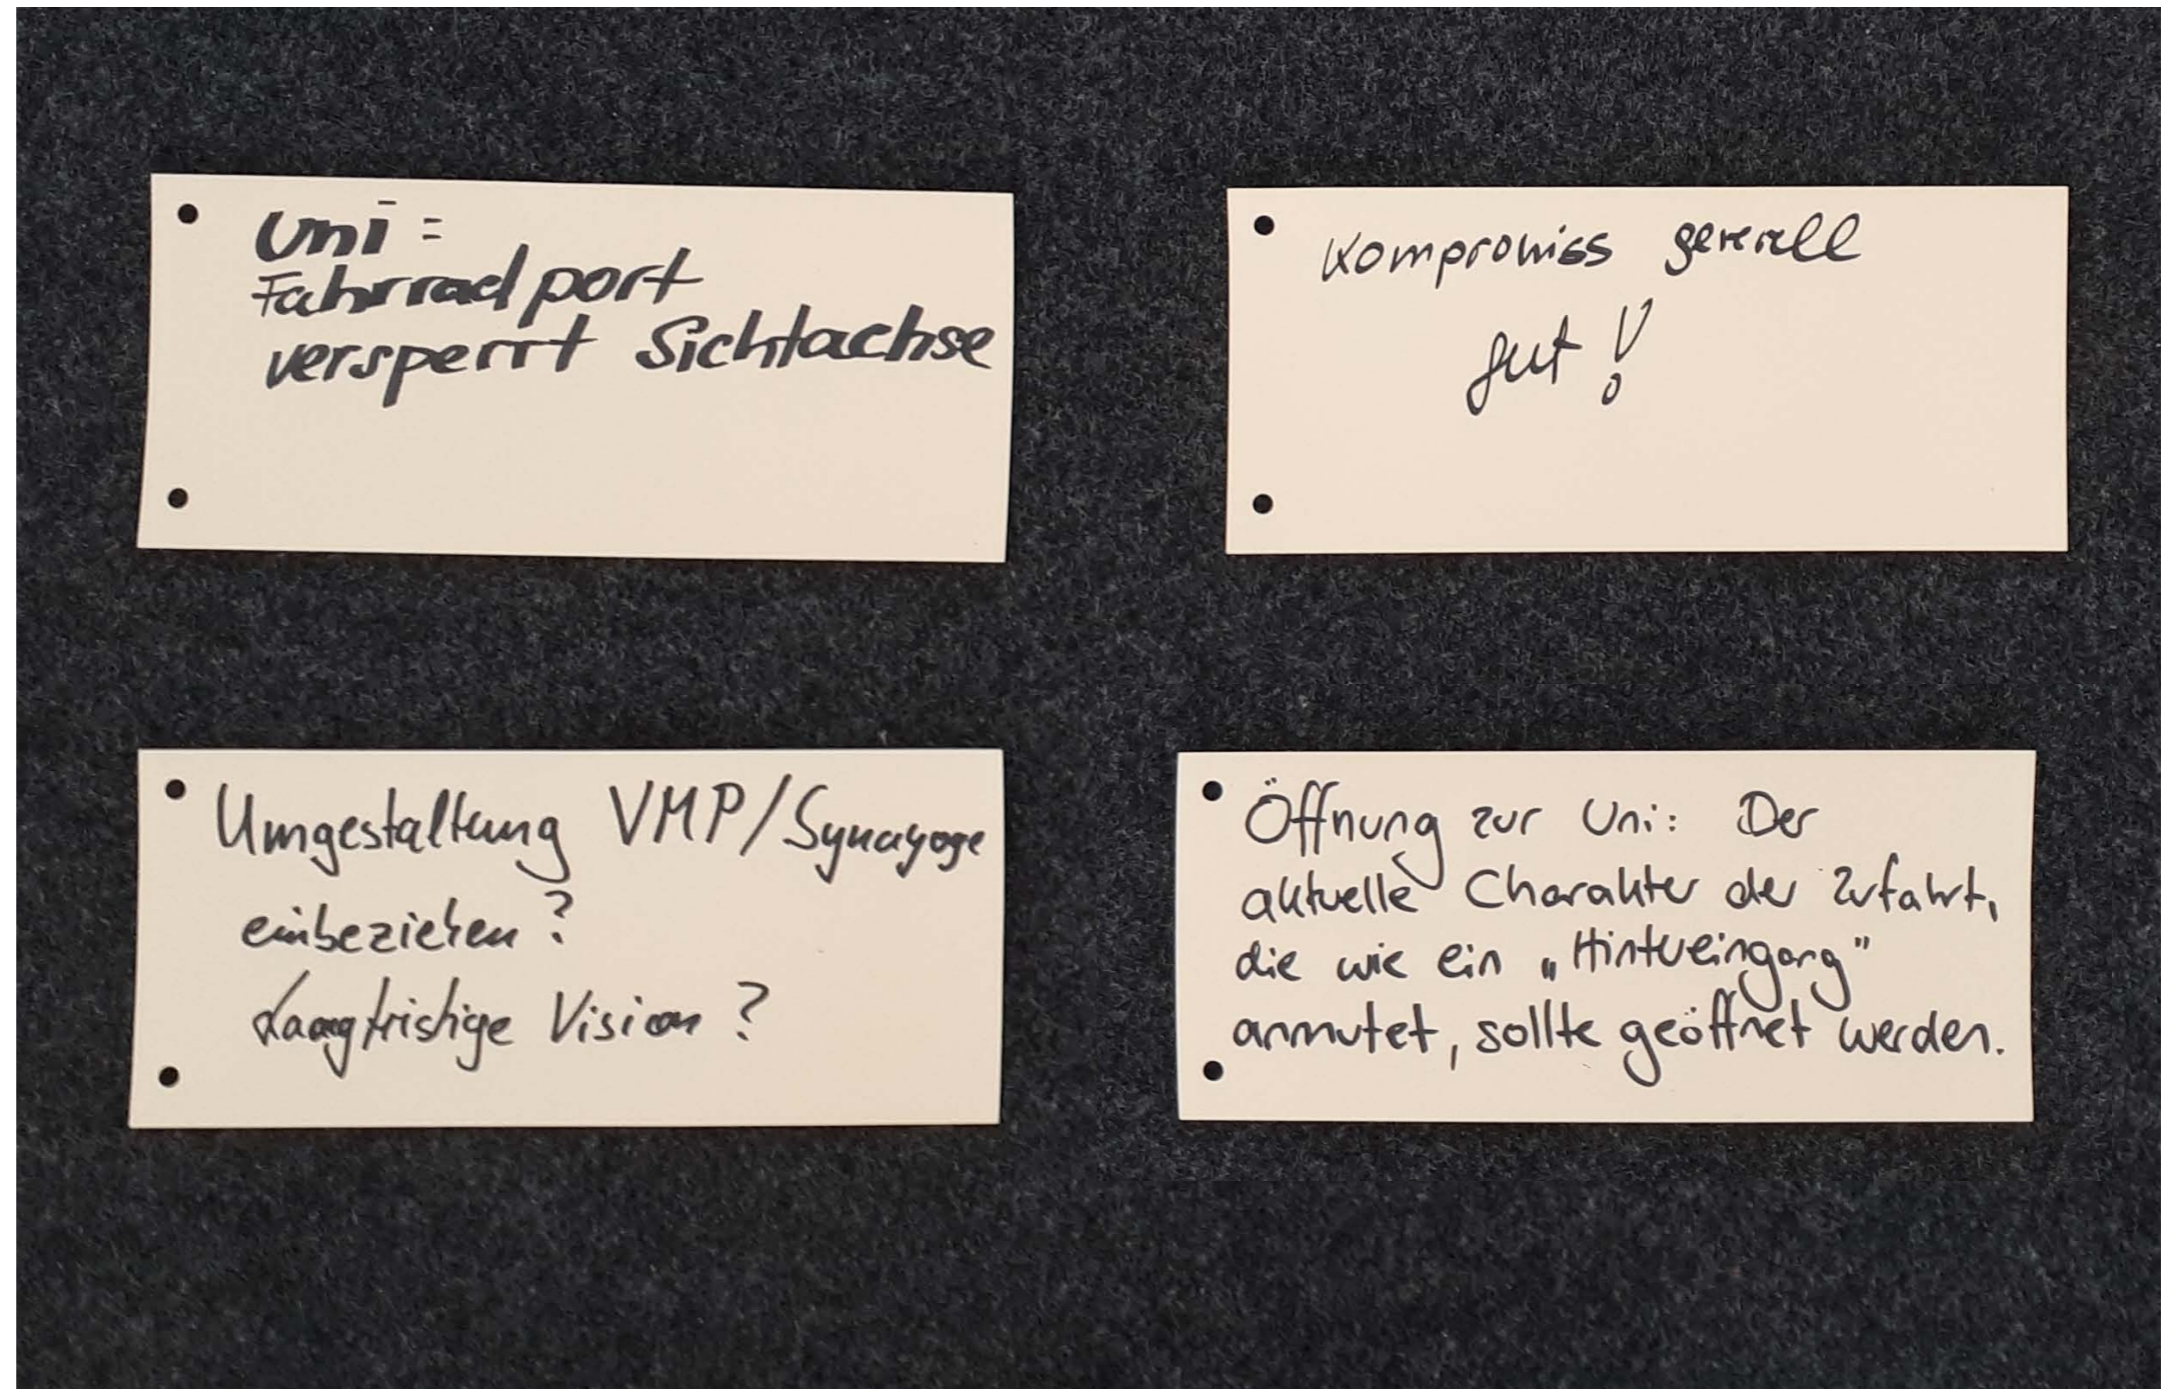 Uni =
Fahrradport
versperrt Sichtachse
Kompromiss generell
gut!
Umgestaltung VMP/Synagoge
einbeziehen?
Langfristige Vision?
Öffnung zur Uni: Der
aktuelle Charakter der Zufahrt,
die wie ein „Hintereingang"
anmutet, sollte geöffnet werden.